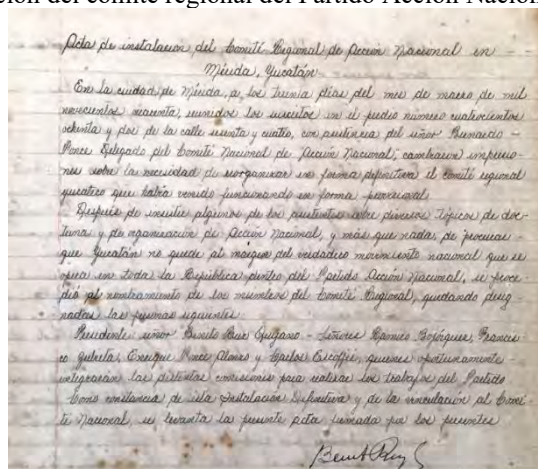 ción del comité regional del Partido Acción Nacion
Acta de instalacion del Comité Regional de Accion Nacional en
Mérida, Yucatán
En la ciudad de Mérida, a los treinta días del mes de marzo de mil
novecientos noventa, reunidos los suscritos en el predio número cuatrocientos
ochenta y dos de la calle sesenta y cuatro, con asistencia del señor Bernardo
Ponce Delegado del Comité Nacional de Accion Nacional, cambiaron impresio-
nes sobre la necesidad de reorganizar en forma definitiva el comité regional
yucateco que había venido funcionando en forma provisional
Después de insistir algunos de los asistentes sobre diversos tópicos de doc-
trina y de organizacion de Accion Nacional, y más que nada, de procurar
que Yucatán no quede al margen del verdadero movimiento nacional que se
opera en toda la República dentro del Partido Acción Nacional, se proce-
dió al nombramiento de los miembros del Comité Regional, quedando desig-
nadas las personas siguientes
Presidente: señor Benito Ruz Quijano - Señores Ramiro Bojórquez, Francis-
co Zubieta, Enrique Ponce Alonzo y Carlos Escoffié, quienes oportunamente
integrarán las distintas comisiones para realizar los trabajos del Partido
Como constancia de esta Instalación Definitiva y de la vinculacion al Comi-
té Nacional, se levanta la presente acta firmada por los presentes